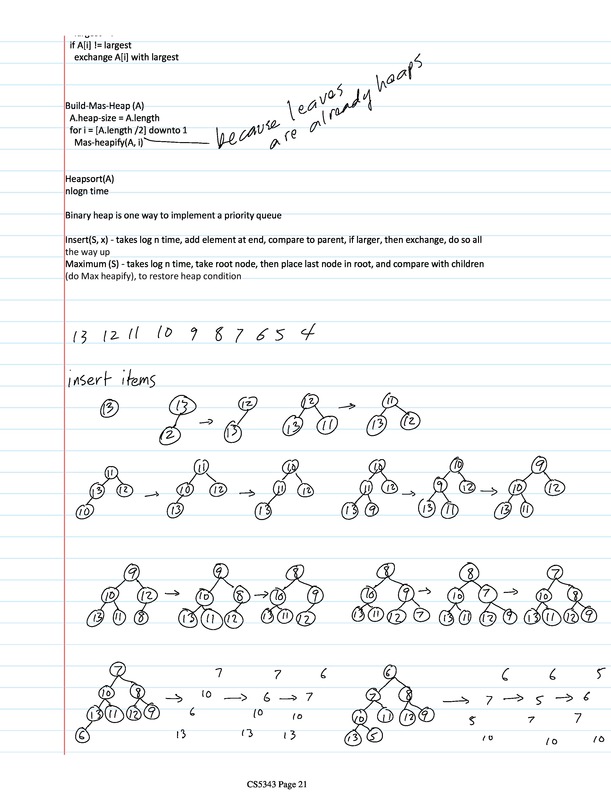 if A[i] != largest
exchange A[i] with largest
because leaves
are already heaps
Build-Mas-Heap (A)
A.heap-size = A.length
for i = [A.length /2] downto 1
Mas-heapify(A, i)
Heapsort(A)
nlogn time
Binary heap is one way to implement a priority queue
Insert(S, x) - takes log n time, add element at end, compare to parent, if larger, then exchange, do so all
the way up
Maximum (S) - takes log n time, take root node, then place last node in root, and compare with children
(do Max heapify), to restore heap condition
13 12 11 10 9 8 7 6 5 4
insert items
13 13 12 12 11
12 13 13 11 13 12
11 11 10 10 10 9
13 12 10 12 11 12 11 12 9 12 10 12
10 13 13 13 9 13 11 13 11
9 9 8 8 8 7
10 12 10 8 10 9 10 9 10 7 10 8
13 11 8 13 11 12 13 11 12 13 11 12 7 13 11 12 9 13 11 12 9
7 7 7 6 6 6 6 5
10 8 10 6 7 7 8 7 5 6
13 11 12 9 6 10 10 10 11 12 9 5 7 7
6 13 13 13 13 5 10 10 10
CS5343 Page 21